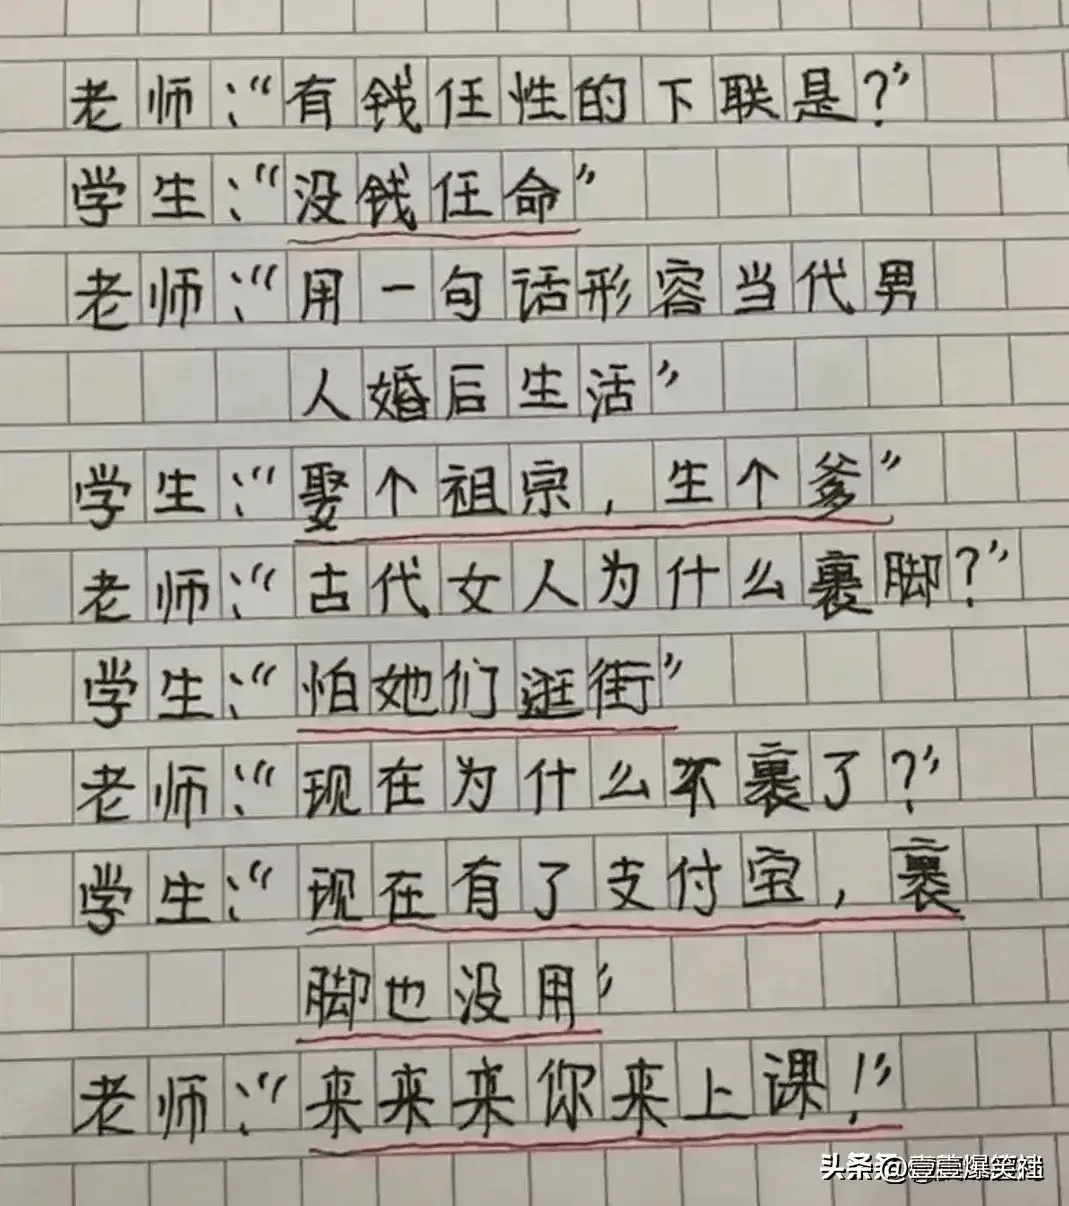 老师："有钱任性的下联是？"
学生："没钱任命"
老师："用一句话形容当代男
人婚后生活"
学生："娶个祖宗，生个爹"
老师："古代女人为什么裹脚？"
学生："怕她们逛街"
老师："现在为什么不裹了？"
学生："现在有了支付宝，裹
脚也没用"
老师："来来来你来上课！"
头条 @壹壹爆笑社